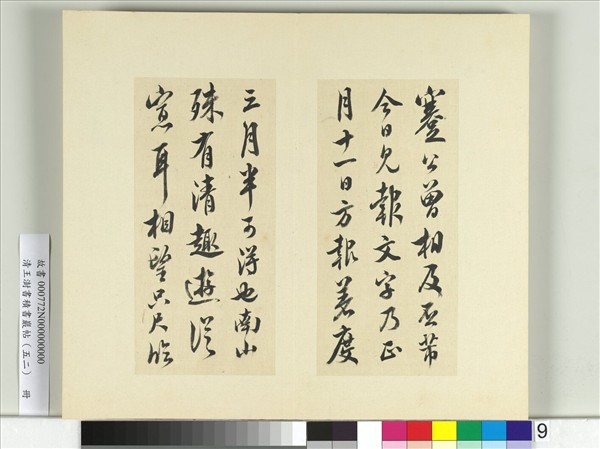 蹇公曾相及否芾
今日見報文字乃正
月十一日方報差度
三月半可得也南山
殊有清趣遊從
寡耳相望只尺臨
故書000772N000000000
清王澍書積書巖帖（五二） 冊
9